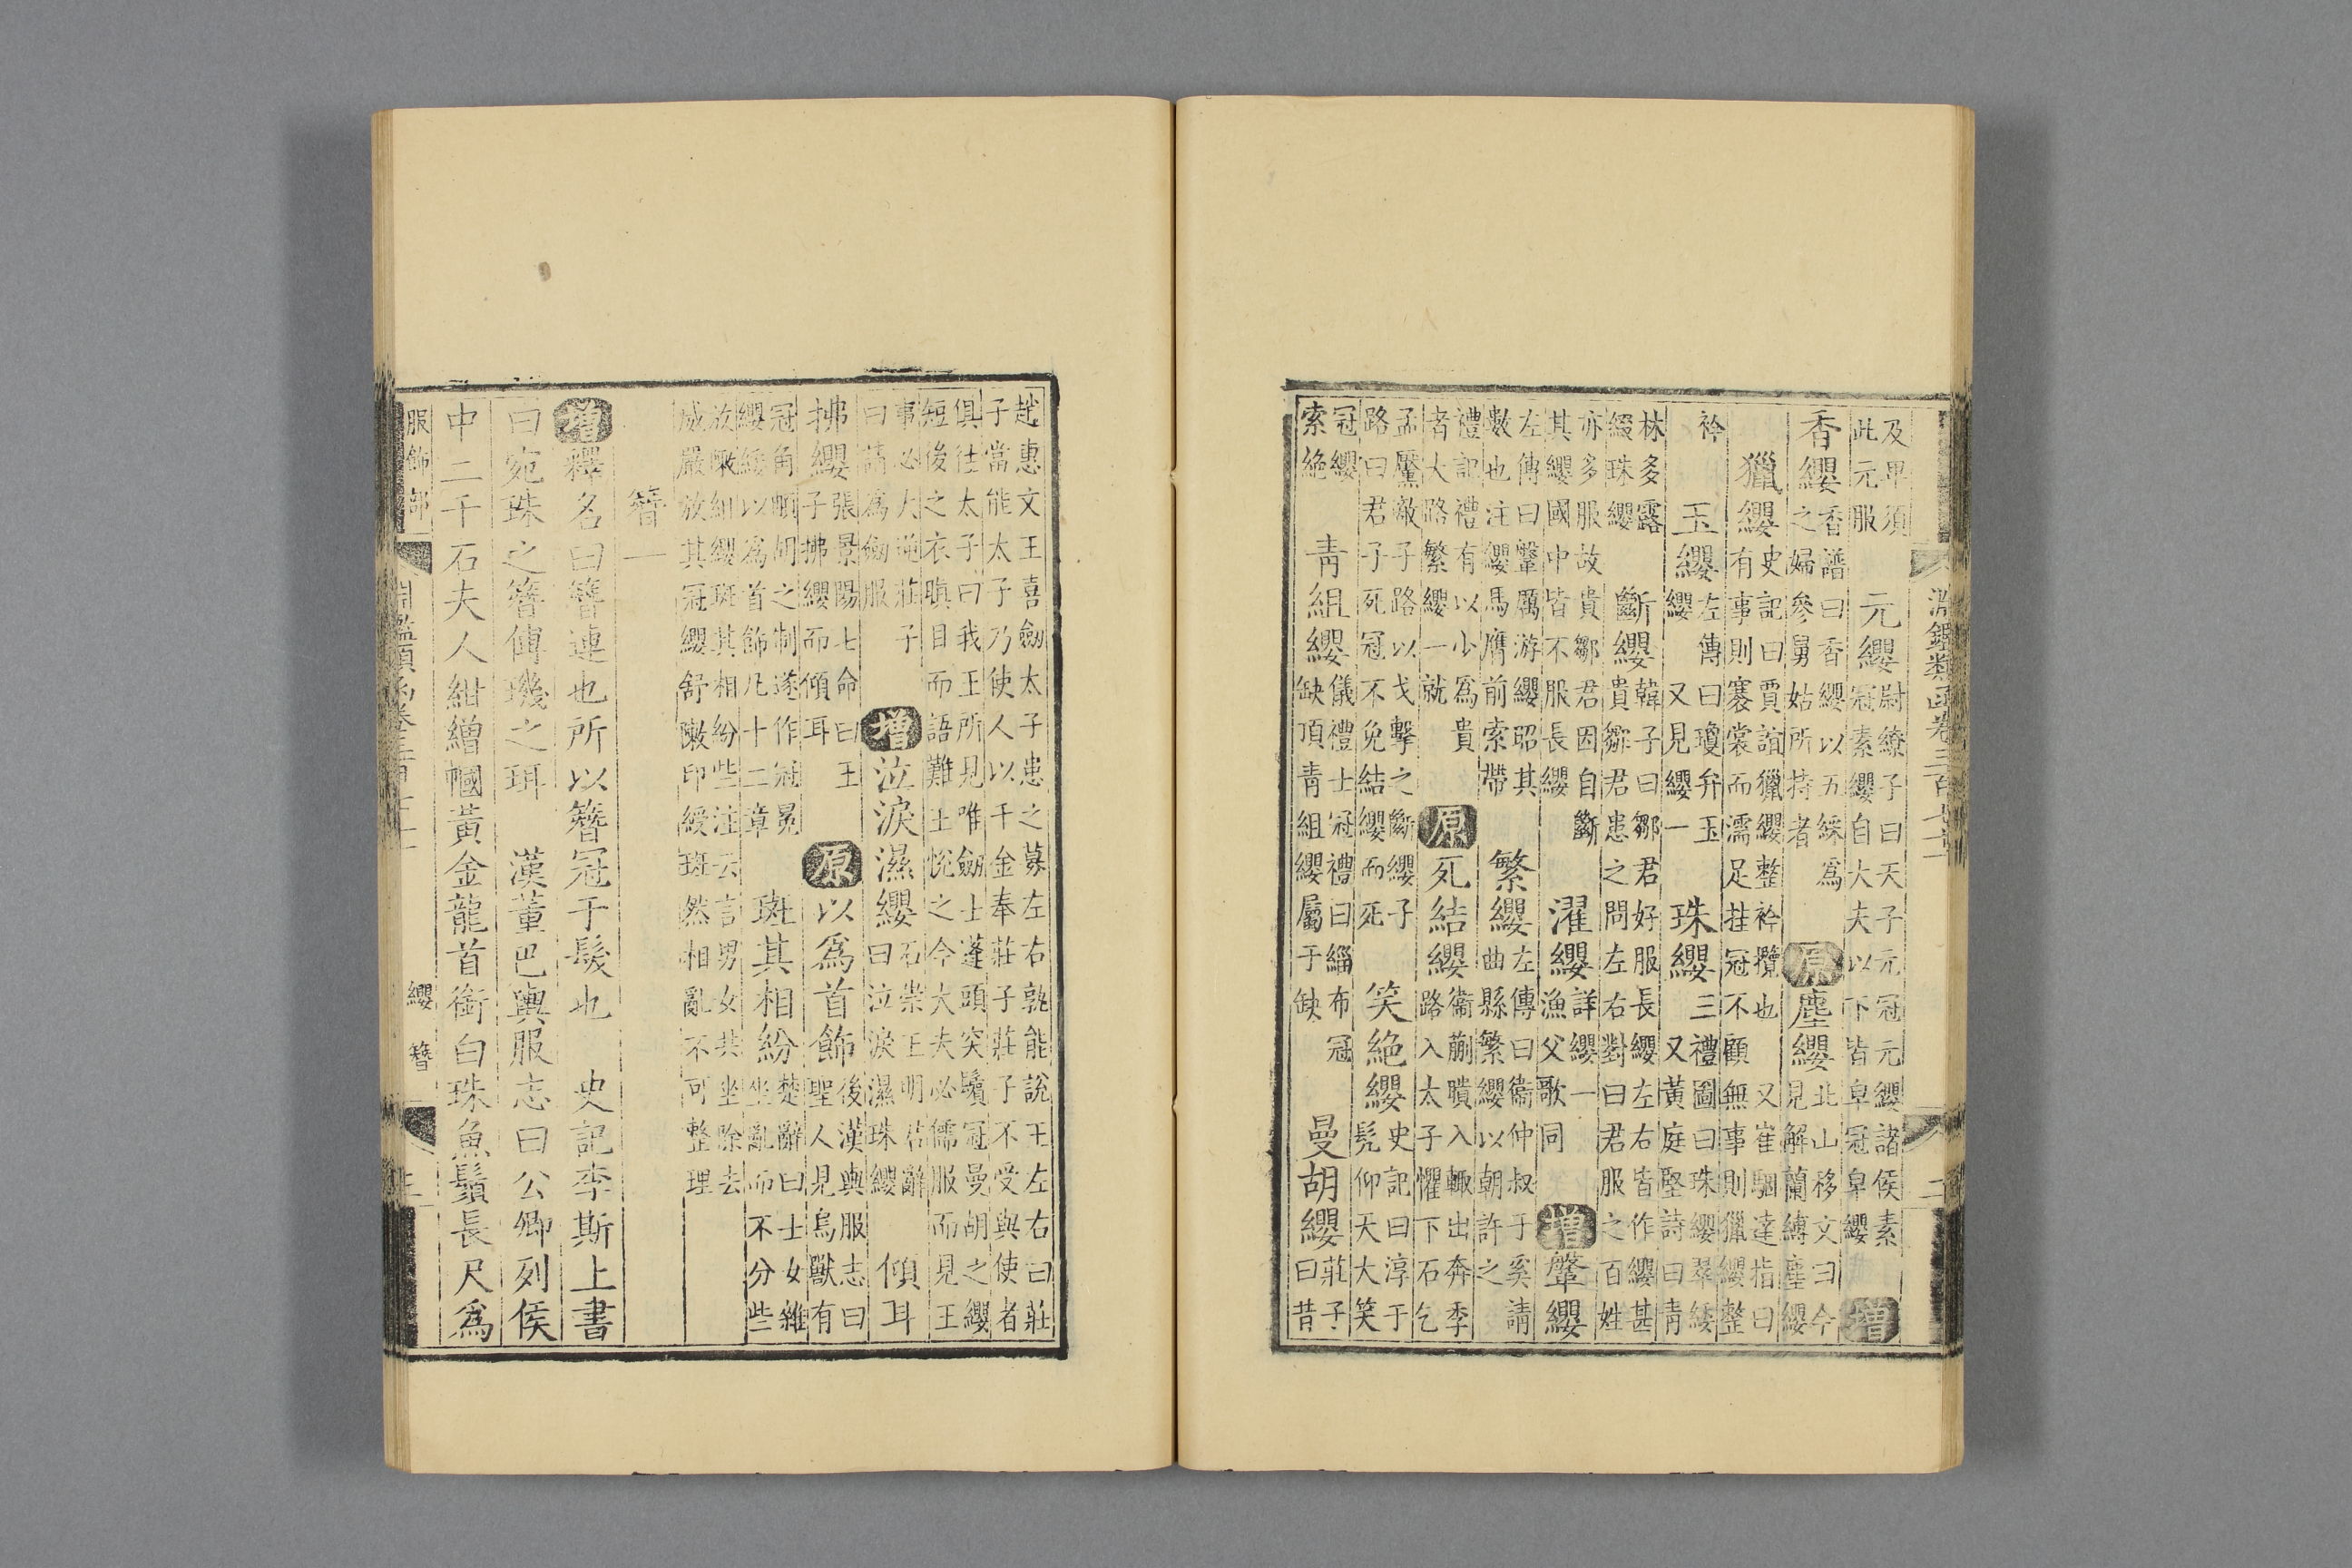 淵鑑類函卷三百七十一 二
及畢須
此元服
元纓
尉繚子曰天子元冠元纓諸侯素
冠素纓自大夫以下皆皁冠皁纓
增
香纓
香譜曰香纓以五綵爲
之婦參舅姑所持者
原
塵纓
北山移文曰今
見解蘭縛塵纓
獵纓
史記曰賈誼獵纓整衿攬也 又崔駰達指曰
有事則褰裳而濡足挂冠不顧無事則獵纓整
衿
玉纓
左傳曰瓊弁玉
纓又見纓一
珠纓
三禮圖曰珠纓翠緌
又黃庭堅詩曰青
林多露
綴珠纓
斷纓
韓子曰鄒君好服長纓左右皆作纓甚
貴鄒君患之問左右對曰君服之百姓
亦多服故貴鄒君因自斷
其纓國中皆不服長纓
濯纓
詳纓一
漁父歌同
增
鞶纓
左傳曰鞶厲游纓昭其
數也注纓馬膺前索帶
繁纓
左傳曰衞仲叔于奚請
曲縣繁纓以朝許之
禮記禮有以少爲貴
者大路繁纓一就
原
死結纓
衞蒯聵入輒出奔季
路入太子懼下石乞
孟黶敵子路以戈擊之斷纓子
路曰君子死冠不免結纓而死
笑絶纓
史記曰淳于
髡仰天大笑
冠纓
索絶
青組纓
儀禮士冠禮曰緇布冠
缺頂青組纓屬于缺
曼胡纓
莊子
曰昔
趙惠文王喜劒太子患之募左右孰能說王左右曰莊
子當能太子乃使人以千金奉莊子莊子不受與使者
俱往太子曰我王所見唯劒士蓬頭突鬢冠曼胡之纓
短後之衣瞋目而語難王悅之今大夫必儒服而見王
事必大逆莊子
曰請爲劒服
增
泣淚濕纓
石崇王明君辭
曰泣淚濕珠纓
傾耳
拂纓
張景陽七命曰王
子拂纓而傾耳
原
以爲首飾
後漢輿服志曰
聖人見鳥獸有
冠角胡之制遂作冠冕
纓緌以爲首飾凡十二章
斑其相紛
楚辭曰士女雜
坐亂而不分些
放敶組纓斑其相紛些注云言男女共坐除去
威嚴放其冠纓舒敶印綬斑然相亂不可整理
簪一
增
釋名曰簪連也所以簪冠于髮也 史記李斯上書
曰宛珠之簪傅璣之珥 漢董巴輿服志曰公卿列侯
中二千石夫人紺繒幗黃金龍首銜白珠魚鬚長尺爲
服飾部 淵鑑類函卷三百七十一 纓 簪 三